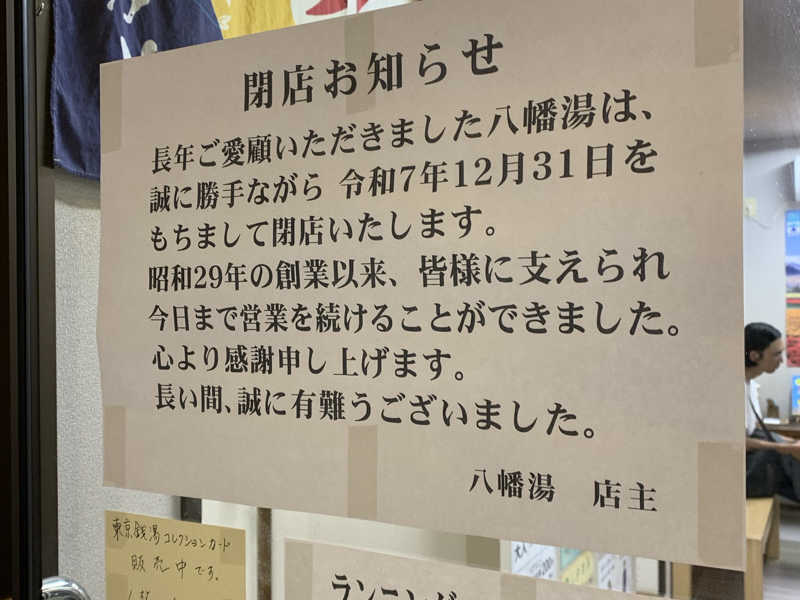 閉店お知らせ
長年ご愛顧いただきました八幡湯は、
誠に勝手ながら 令和7年12月31日を
もちまして閉店いたします。
昭和29年の創業以来、皆様に支えられ
今日まで営業を続けることができました。
心より感謝申し上げます。
長い間、誠に有難うございました。
八幡湯 店主
東京銭湯コレクションカード
販売中です。